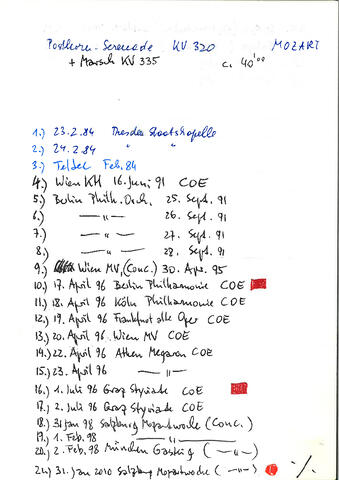 Posthorn-Serenade KV 320 MOZART
+ Marsch KV 335 c. 40'00
1.) 23.2.84 Dresden Staatskapelle
2.) 24.2.84 " "
3.) Teldec Feb. 84
4.) Wien KH 16. Juni 91 COE
5.) Berlin Philh. Orch. 25. Sept. 91
6.) —"— 26. Sept. 91
7.) —"— 27. Sept. 91
8.) —"— 28. Sept. 91
9.) Wien MV, (Conc.) 30. Apr. 95
10.) 17. April 96 Berlin Philharmonie COE
11.) 18. April 96 Köln Philharmonie COE
12.) 19. April 96 Frankfurt alte Oper COE
13.) 20. April 96 Wien MV COE
14.) 22. April 96 Athen Megaron COE
15.) 23. April 96 —"—
16.) 1. Juli 96 Graz Styriade COE
17.) 2. Juli 96 Graz Styriade COE
18.) 31 Jan 98 Salzburg Mozartwoche (Conc.)
19.) 1. Feb. 98 —"—
20.) 2. Feb. 98 München Gasteig (—"—)
21.) 31. Jan 2010 Salzburg Mozartwoche (—"—)